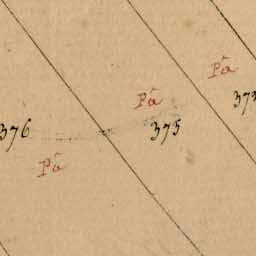 Pâ
Pâ
375
376
Pâ